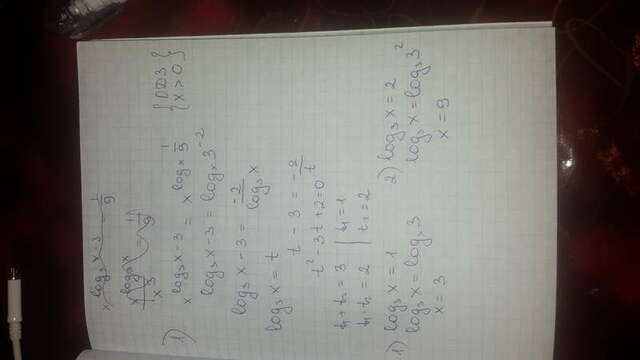 x^(log₃x - 3) = 1/9
1) x^(log₃x - 3) = x^(log_x 1/9) {ОДЗ
x > 0}
log₃x - 3 = log_x 3^(-2)
log₃x - 3 = -2/log₃x
log₃x = t
t - 3 = -2/t
t² - 3t + 2 = 0
t₁ + t₂ = 3 | t₁ = 1
t₁ · t₂ = 2 | t₂ = 2
1) log₃x = 1
log₃x = log₃3
x = 3
2) log₃x = 2
log₃x = log₃3²
x = 9